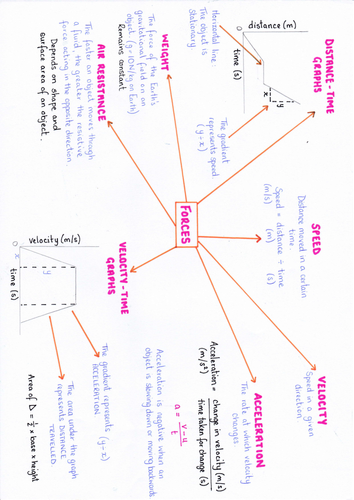 DISTANCE-TIME
GRAPHS
distance (m)
time (s)
y
x
Horizontal line:
The object is
stationary
The gradient
represents speed
(y÷x)
SPEED
Distance moved in a certain
time
Speed = distance ÷ time
(m/s) (m) (s)
VELOCITY
Speed in a given
direction
ACCELERATION
The rate at which velocity
changes
Acceleration = change in velocity (m/s)
(m/s²) time taken for change (s)
a = v-u
t
Acceleration is negative when an
object is slowing down or moving backwards
FORCES
WEIGHT
The force of the Earth's
gravitational field on an
object (g=10N/kg on Earth)
Remains constant
AIR RESISTANCE
The faster an object moves through
a fluid, the greater the resistive
force acting in the opposite direction.
Depends on shape and
surface area of an object.
VELOCITY-TIME
GRAPHS
velocity (m/s)
time (s)
y
x
O
The gradient represents (y÷x)
ACCELERATION
The area under the graph
represents DISTANCE
TRAVELLED.
Area of D = ½ × base × height